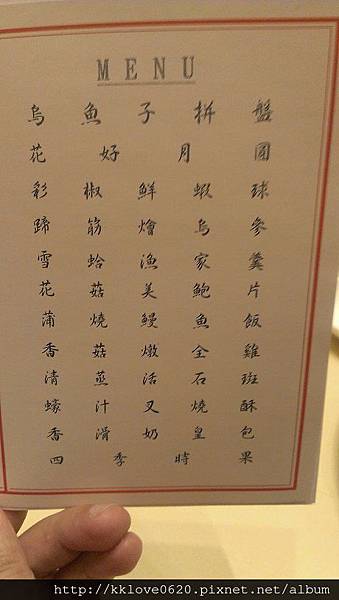 MENU
烏魚子拼盤
花好月圓
彩椒鮮蝦球
蹄筋燴烏參
雪蛤漁家羹
花菇美鮑片
蒲燒鰻魚飯
香菇燉全雞
清蒸活石斑
蠔汁叉燒酥
香滑奶皇包
四季時果
http://kklove0620.pixnet.net/album